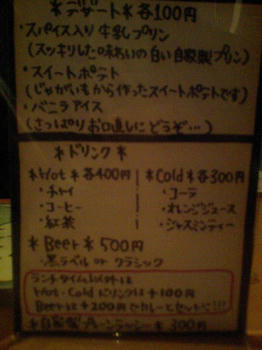 *デザート* 各100円
・スパイス入り牛乳プリン
(スッキリした味わいの白い自家製プリン)
・スイートポテト
(じゃがいもから作ったスイートポテトです)
・バニラアイス
(さっぱりお口直しにどうぞ…)
*ドリンク*
*Hot* 各400円
・チャイ
・コーヒー
・紅茶
*Cold* 各300円
・コーラ
・オレンジジュース
・ジャスミンティー
*Beer* 500円
・黒ラベル or クラシック
ランチタイム以外は
Hot・Coldドリンクは+100円
Beerは+200円でカレーとセットに!!!
*自家製プレーンラッシー* 300円